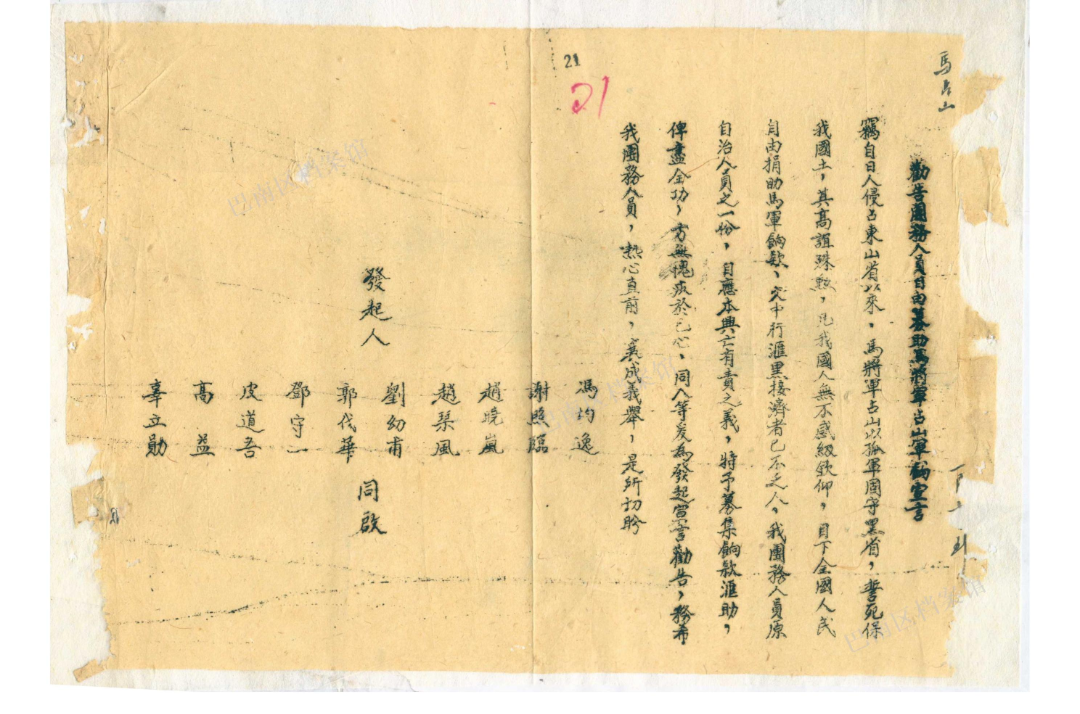 馬占山
勸告團務人員自由募助馬將軍占山軍餉宣言
竊自日人侵占東山省以來，馬將軍占山以孤軍固守黑省，誓死保
我國土，其高誼殊勲，凡我國人無不感級欽仰，目下全國人民
自由捐助馬軍餉款，交中行滙黑接濟者已不乏人。我團務人員原
自治人員之一份，自應本興亡有責之義，特予募集餉款滙助，
俾盡全功，方無愧疚於已心，同人等爰為發起宣言勸告，務希
我團務人員，熱心直前，襄成義舉，是所切盼
21
21
發起人
馮均逸
謝照臨
趙曉嵐
趙琹風
劉幼甫
郭代華
鄧守一
皮道吾
高益
辜立勛
同啟
巴南区档案馆
巴南区档案馆
巴南区档案馆